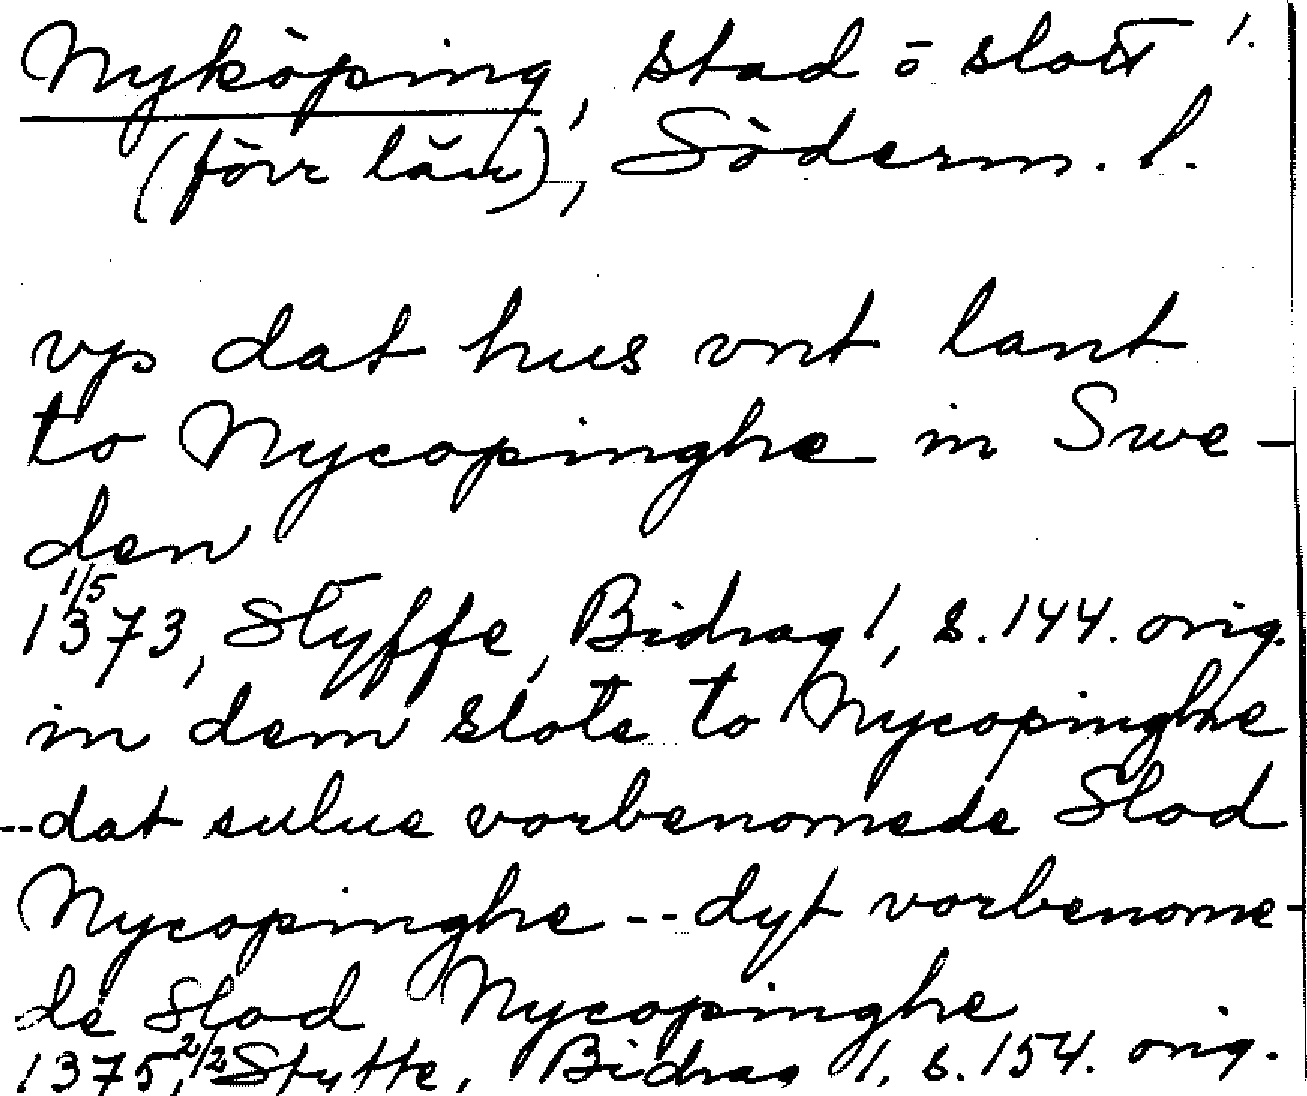 Nyköping, stad ō slott 1.
(förr län), Söderm. l.
vp dat hus vnt lant
to Nycopinghe in Swe-
den
1373, 1/5 Styffe, Bidrag 1, s. 144. orig.
in dem slote to Nycopinghe
--dat sulue vorbenomede Slod
Nycopinghe -- dyt vorbenome-
de Slod Nycopinghe
1375, 2/2 Styffe, Bidrag 1, s. 154. orig.